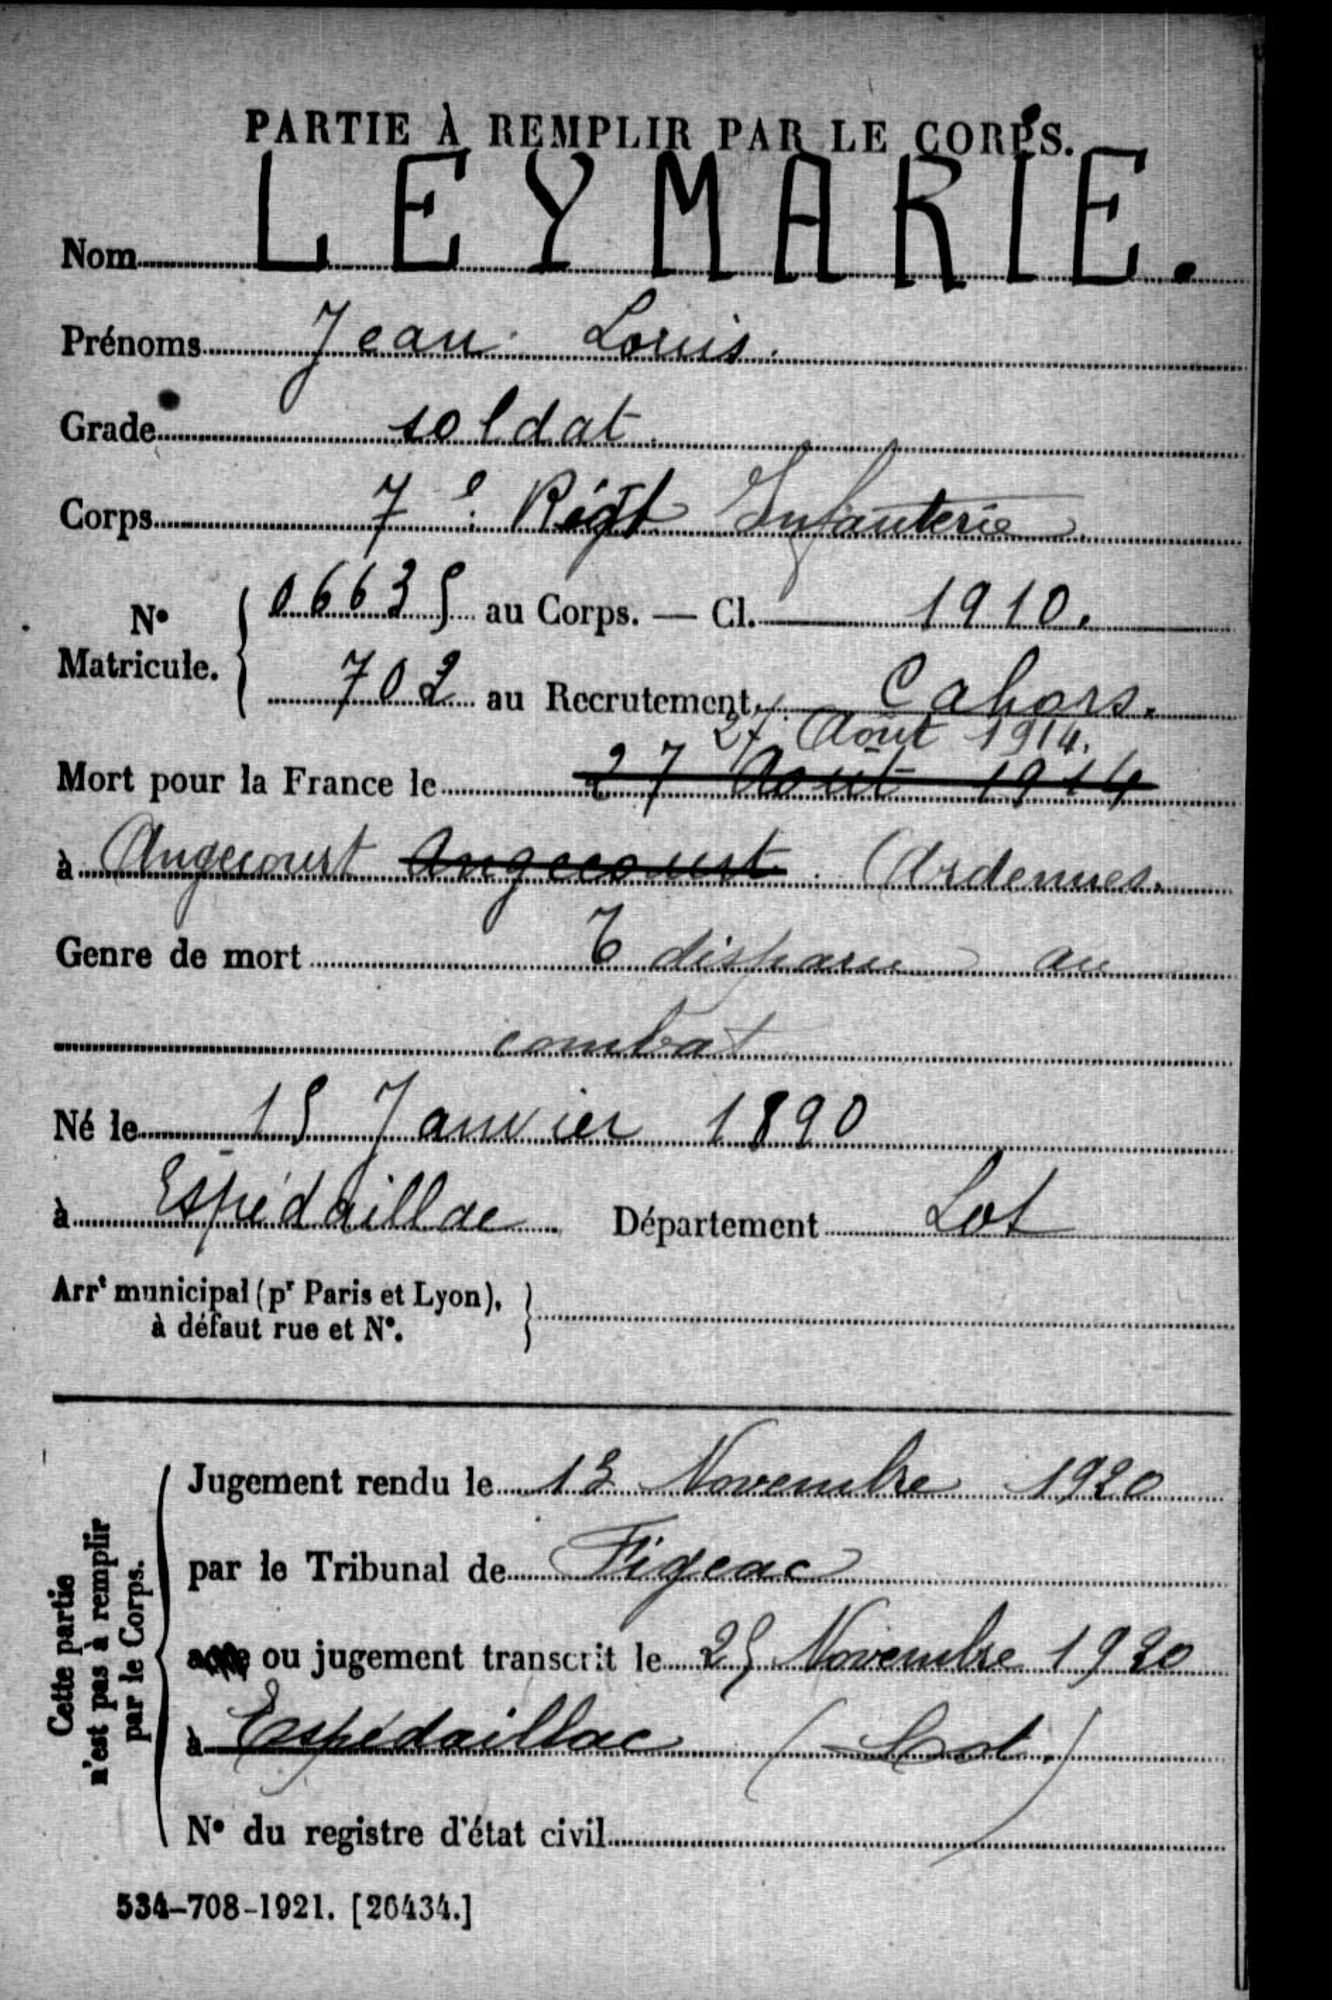 PARTIE À REMPLIR PAR LE CORPS.
Nom LEYMARIE.
Prénoms Jean Louis.
Grade soldat.
Corps 7e Régt Infanterie
No Matricule. { 06635 au Corps. — Cl. 1910.
702 au Recrutement Cahors.
27 Août 1914.
Mort pour la France le 27 Août 1914
à Angecourt Angecourt. Ardennes.
Genre de mort disparu au
combat
Né le 15 Janvier 1890
à Espédaillac Département Lot
Arrt municipal (pr Paris et Lyon), à défaut rue et No. }
Cette partie n'est pas à remplir par le Corps.
Jugement rendu le 13 Novembre 1920
par le Tribunal de Figeac
acte ou jugement transcrit le 25 Novembre 1920
à Espédaillac (Lot.)
No du registre d'état civil
534-708-1921. [26434.]